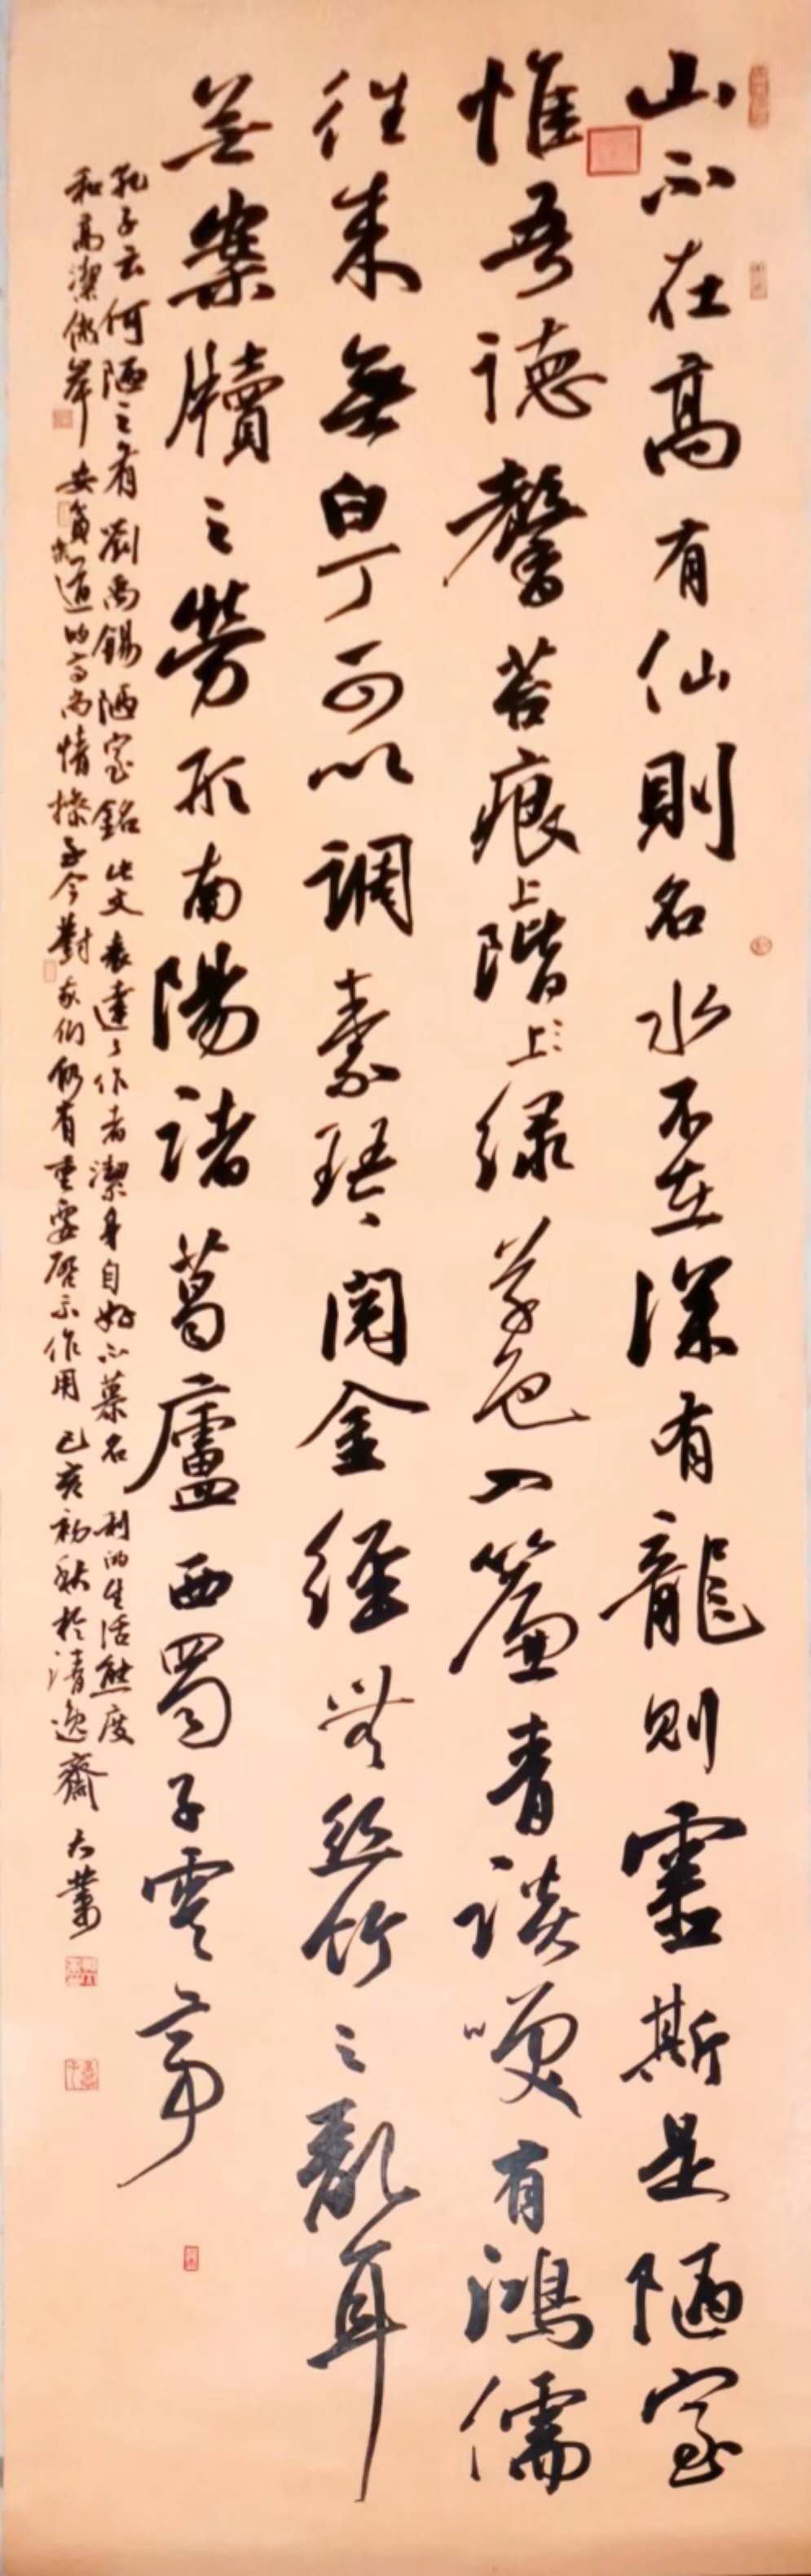 山不在高有仙則名水不在深有龍則靈斯是陋室
惟吾德馨苔痕上階上綠草色入簾青談笑有鴻儒
往來無白丁可以調素琴閱金經無絲竹之亂耳
無案牘之勞形南陽諸葛廬西蜀子雲亭
孔子云何陋之有劉禹錫陋室銘此文表達了作者潔身自好不慕名利的生活態度
和高潔傲岸安貧樂道的高尚情操至今對我們仍有重要啓示作用己亥初秋於清逸齋大業